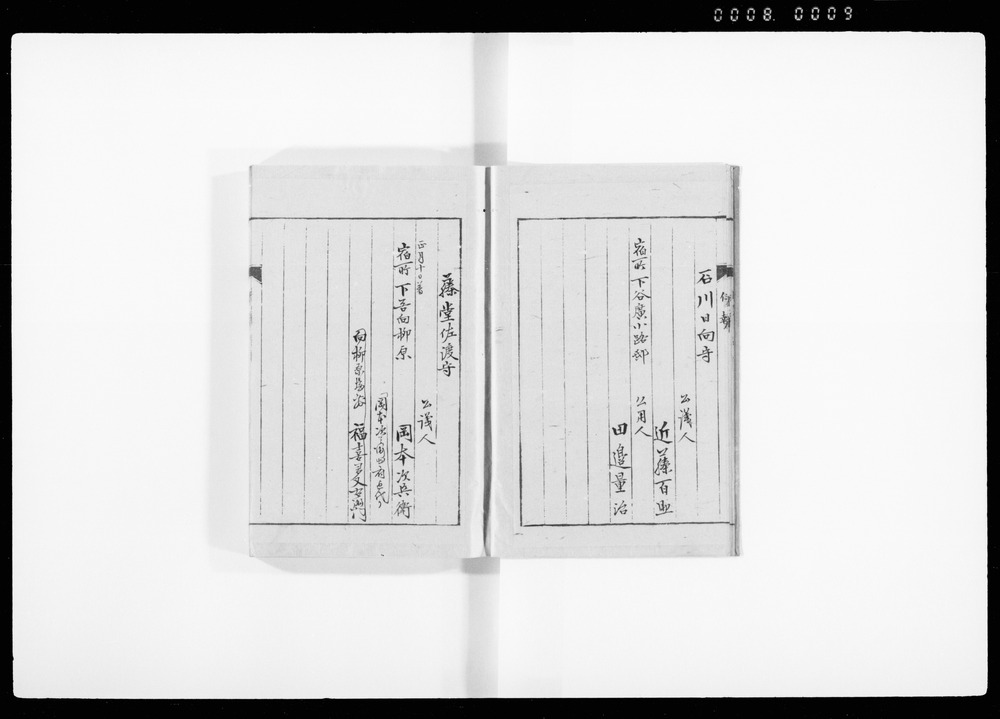 0008. 0009
石川日向守
公議人
近藤百助
宿所 下谷廣小路邸
公用人
田邉量治
藤堂佐渡守
公議人
正月十日着
宿所 下吾向柳原
岡本次兵衛
向柳原
福喜多